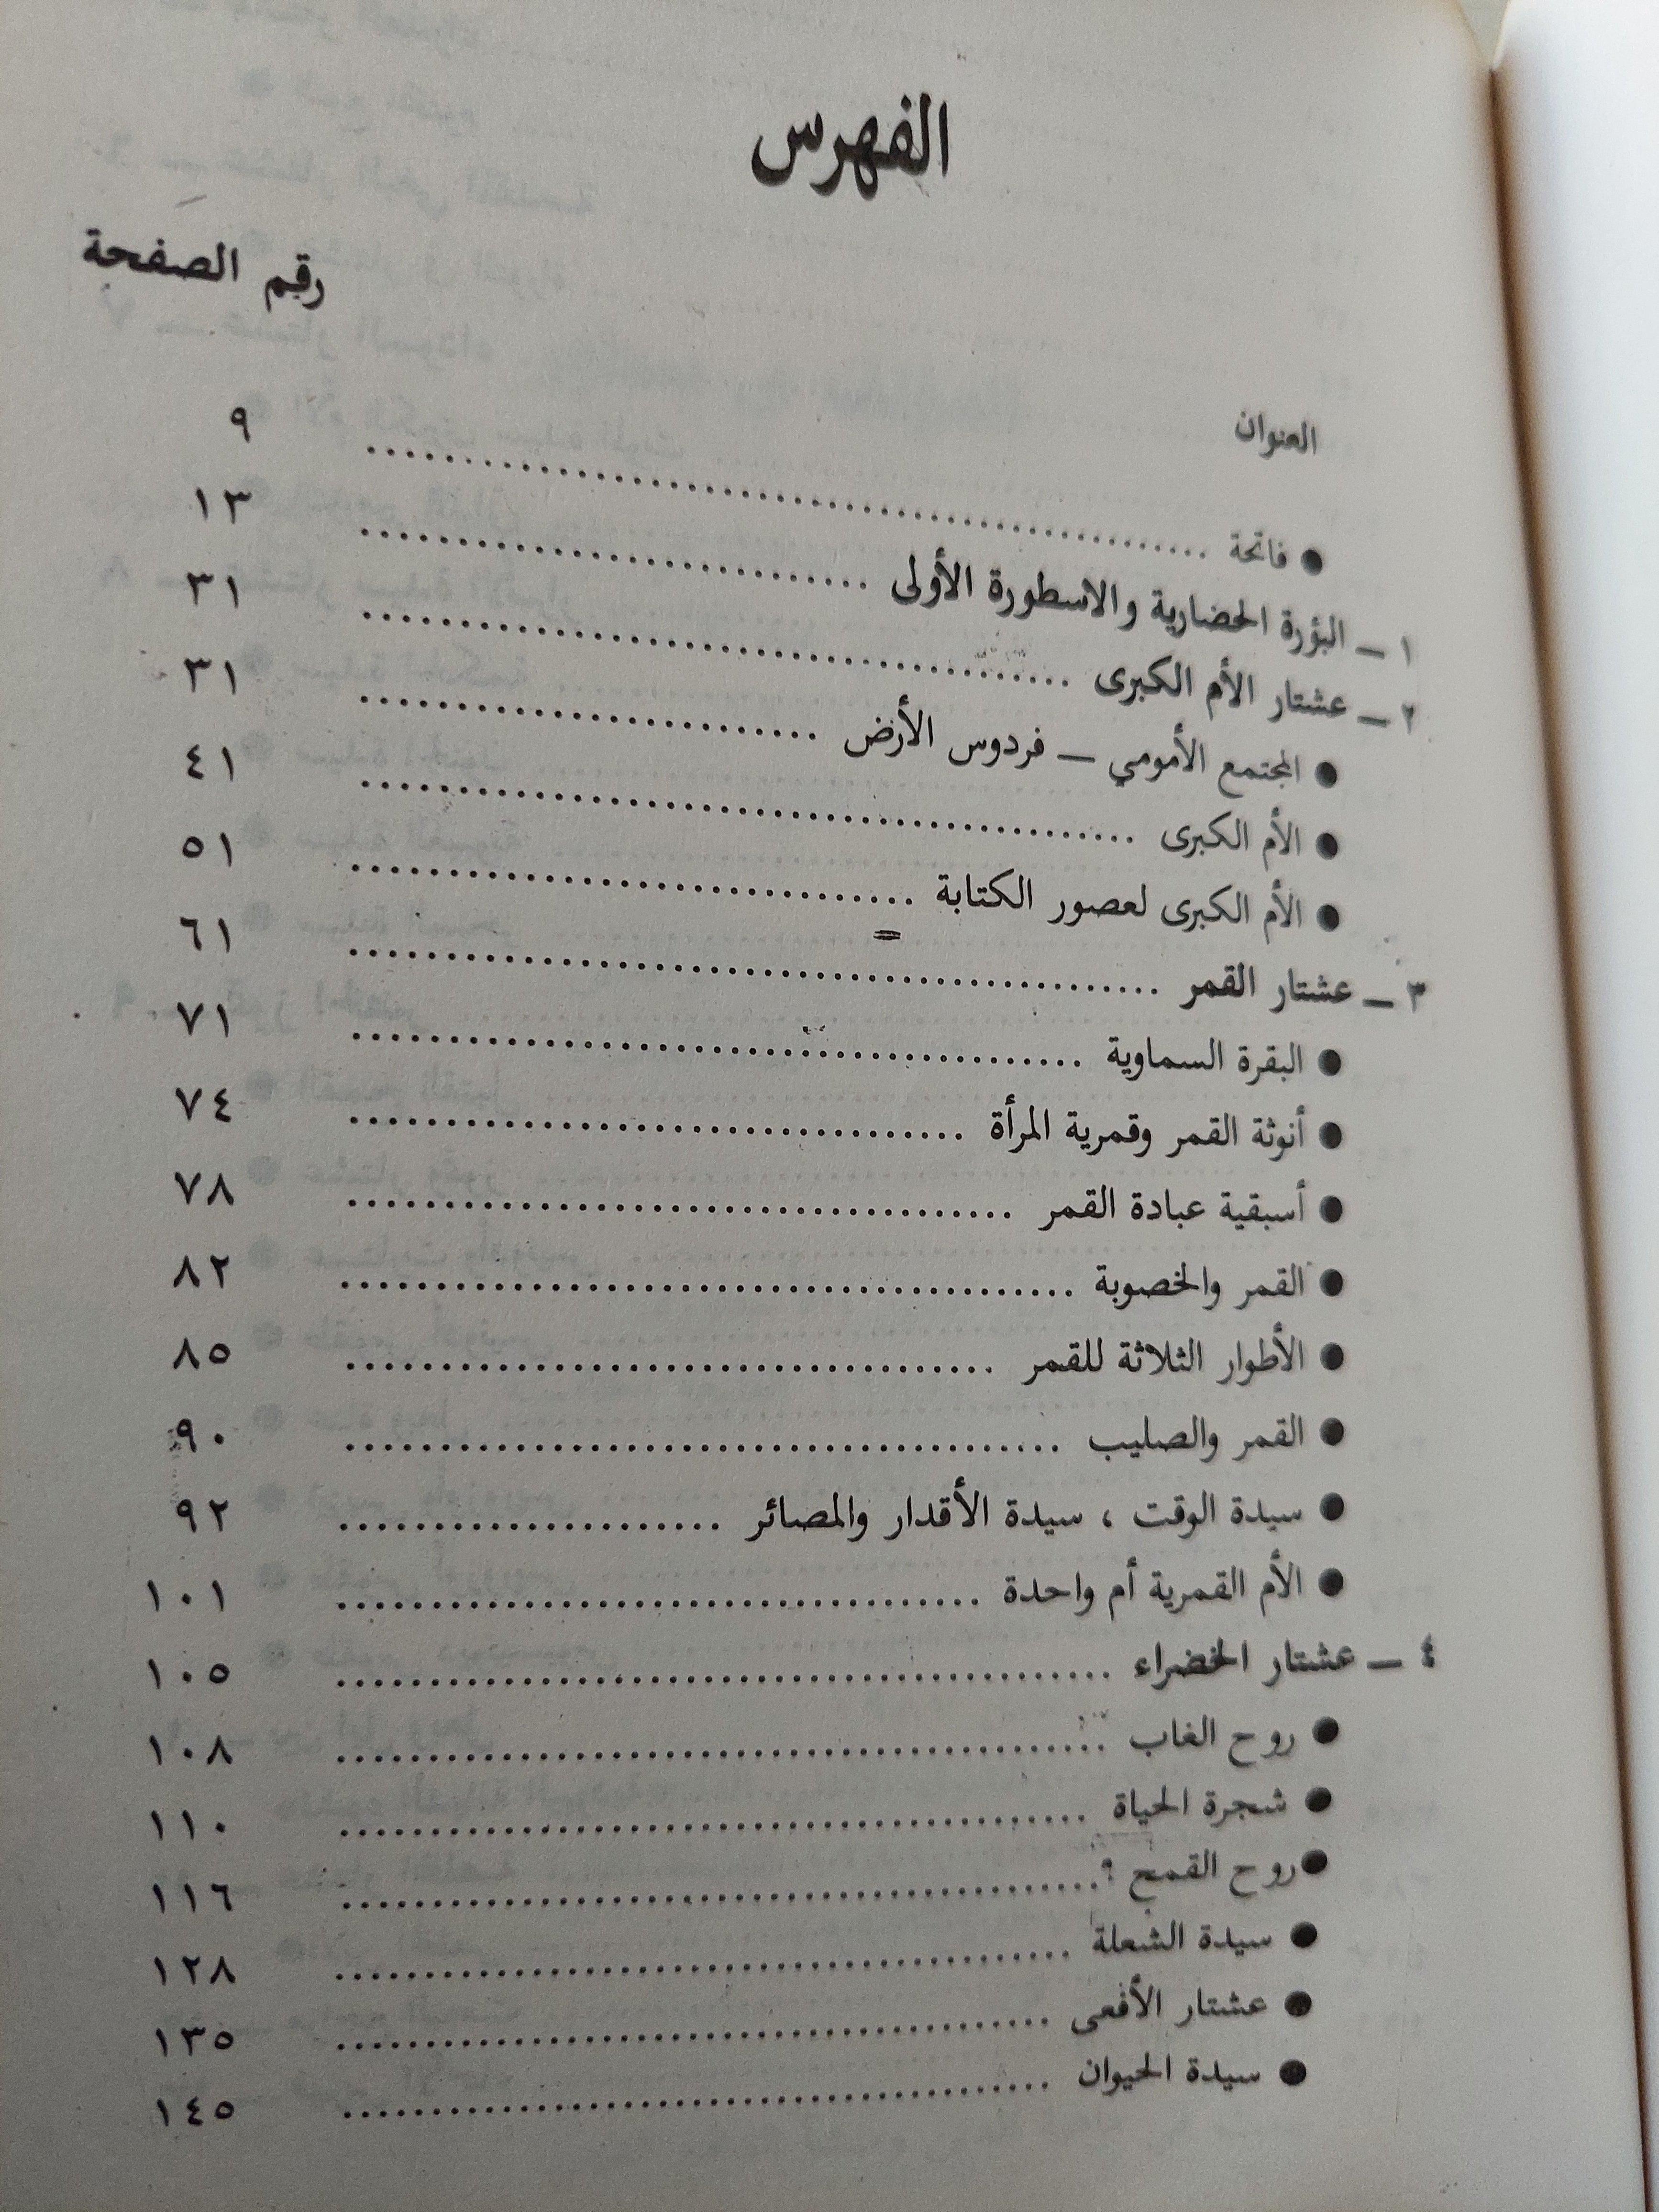 الفهرس
رقم الصفحة
العنوان
● فاتحة .......... ٩
١ ـ البؤرة الحضارية والاسطورة الأولى .......... ١٣
٢ ـ عشتار الأم الكبرى .......... ٣١
● المجتمع الأمومي ـ فردوس الأرض .......... ٣١
● الأم الكبرى .......... ٤١
● الأم الكبرى لعصور الكتابة .......... ٥١
٣ ـ عشتار القمر .......... ٦١
● البقرة السماوية .......... ٧١
● أنوثة القمر وقمرية المرأة .......... ٧٤
● أسبقية عبادة القمر .......... ٧٨
● القمر والخصوبة .......... ٨٢
● الأطوار الثلاثة للقمر .......... ٨٥
● القمر والصليب .......... ٩٠
● سيدة الوقت ، سيدة الأقدار والمصائر .......... ٩٢
● الأم القمرية أم واحدة .......... ١٠١
٤ ـ عشتار الخضراء .......... ١٠٥
● روح الغاب .......... ١٠٨
● شجرة الحياة .......... ١١٠
● روح القمح ؟ .......... ١١٦
● سيدة الشعلة .......... ١٢٨
● عشتار الأفعى .......... ١٣٥
● سيدة الحيوان .......... ١٤٥